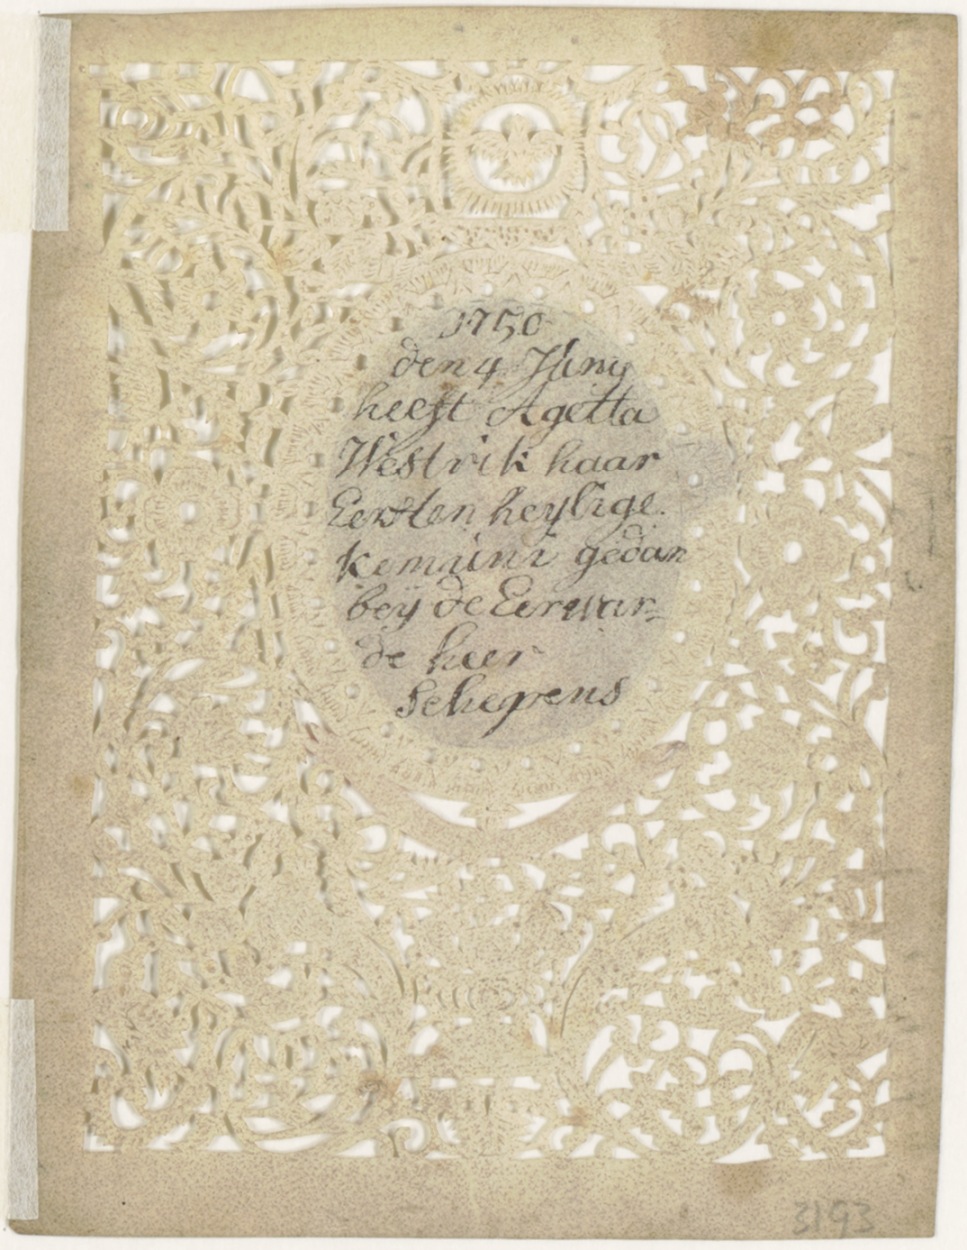 1750
den 4 Juny
heeft Agetta
Westrik haar
Eersten heylige
kemuini gedan
bey de Eerwar=
de heer
Schegrens
3193